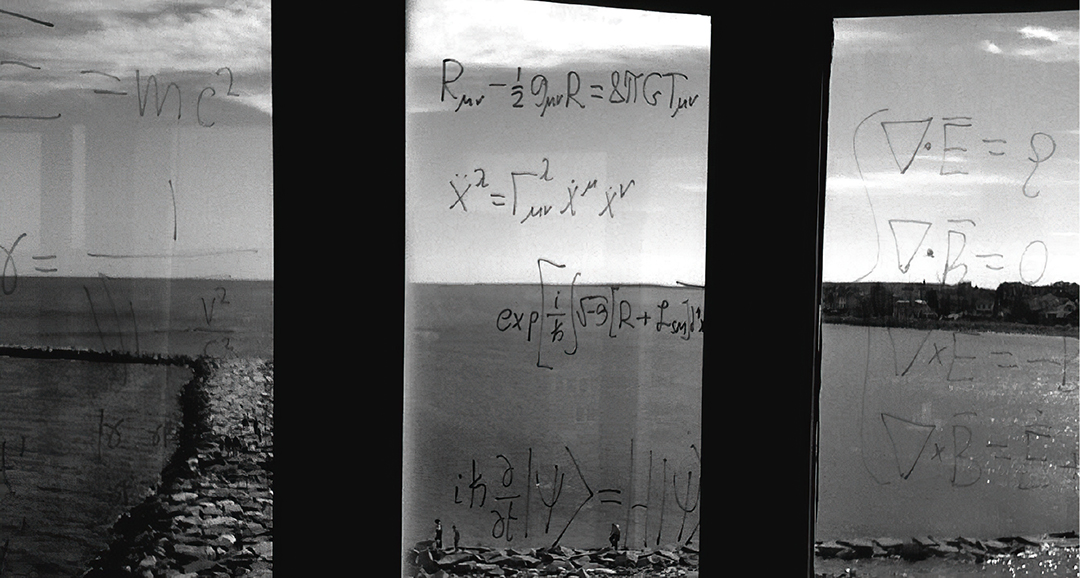 E = mc²
γ = 1/√ v²/c²
R_μν - ½ g_μν R = 8πG T_μν
ẍ^λ = Γ^λ_μν ẋ^μ ẋ^ν
exp[i/ħ ∫√-g [R + ℒ_SM] d⁴x
iħ ∂/∂t |ψ⟩ = H|ψ⟩
∇·E̅ = ρ
∇·B̅ = 0
∇×E̅ = -
∇×B̅ = E̅